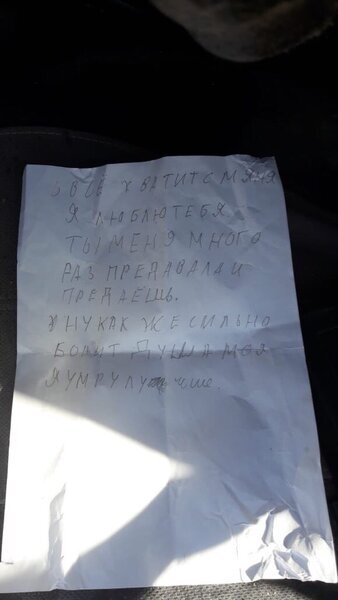 ВСЁ ХВАТИТ С МЯНЯ
Я ЛЮБЛЮ ТЕБЯ
ТЫ МЕНЯ МНОГО
РАЗ ПРЕДАВАЛА И
ПРЕДАЁШЬ.
НУ КАК ЖЕ СИЛЬНО
БОЛИТ ДУША МОЯ
Я УМРУ ЛУЧШЕ.